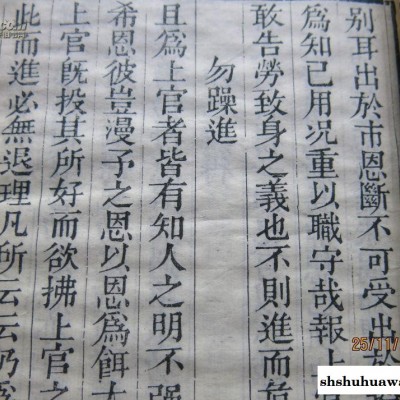 别耳出於市恩斷不可受出於
爲知已用况重以職守哉報上
敢告勞致身之義也不則進而危
勿躁進
且爲上官者皆有知人之明不
希恩彼豈漫予之恩以恩爲餌
上官旣投其所好而欲拂上官之
此而進必無退理凡所云云乃爲
25/11/
shshuhuawa